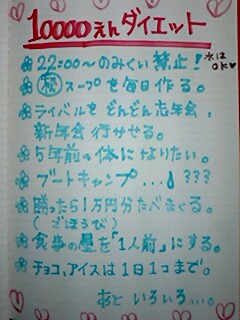 10000えんダイエット
❀22:00～のみくい禁止！
水は
OK♥
❀㊙スープを毎日作る。
❀ライバルをどんどん忘年会、
新年会行かせる。
❀5年前の体になりたい。
❀ブートキャンプ...！???
❀勝ったら1万円分たべまくる。
（ごほうび）
❀食事の量を「1人前」にする。
❀チョコ、アイスは1日1コまで。
あといろいろ...。